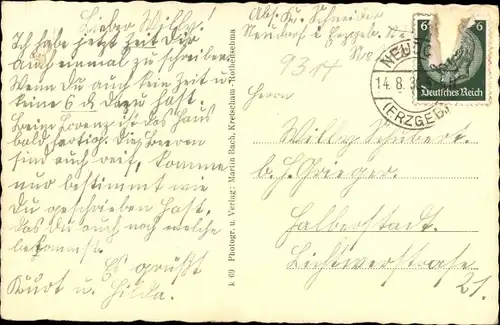 Lieber Willy!
Ich habe jetzt Zeit Dir
auch einmal zu schreiben
Wenn Du auch kein Zeit u.
keine 6 ₰ dazu hast.
Beim Lorenz ist das Haus
bald fertig. Die Beeren
sind auch reif, komme
nur bestimmt wie
Du geschrieben hast,
das Du auch noch welche
bekommst.
Es grüßt
Kurt u. Hilda.
k 69 Photogr. u. Verlag: Martin Bach, Kretscham-Rothensehma
Abs. K. Schneider
Neudorf i. Erzgeb.
No
9314
NEUDO
14.8.3
(ERZGEB)
6 6
Deutsches Reich
Herrn
Willy Schubert
b. H. Grieger.
Halberstadt.
Lichtwerstraße
21.